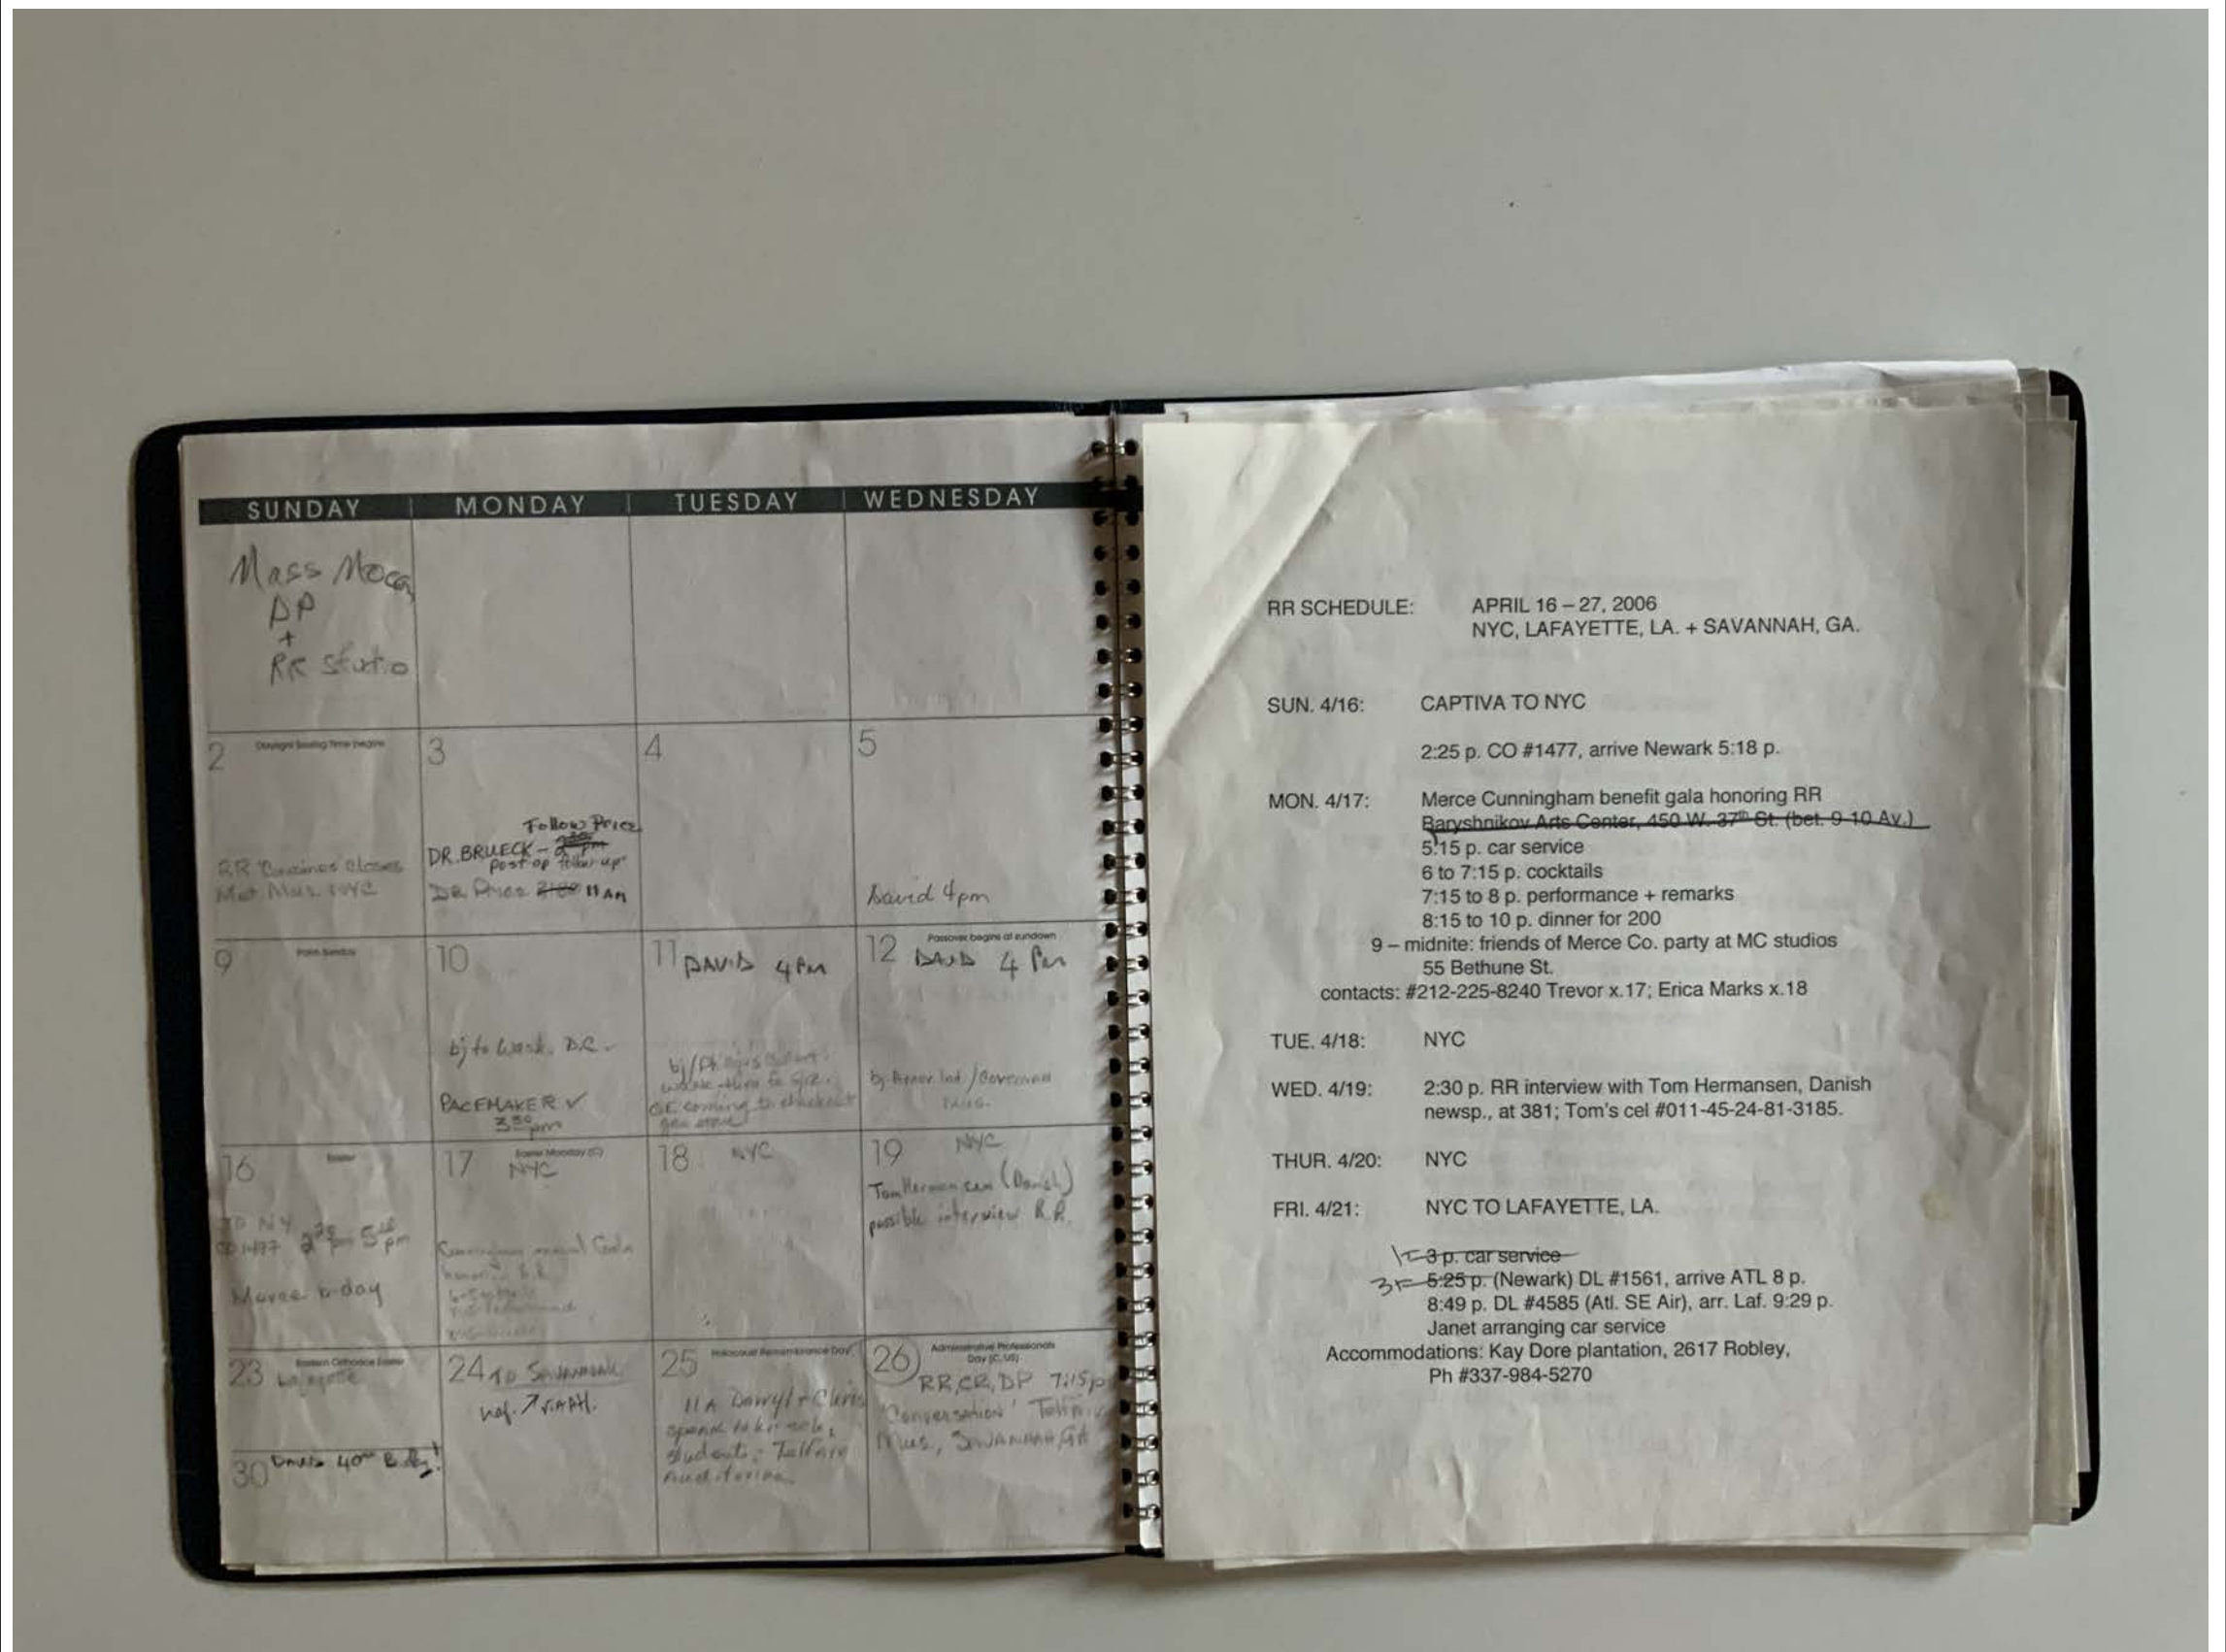 SUNDAY MONDAY TUESDAY WEDNESDAY
Mass Moca
DP
+
RR Studio
2 Daylight Saving Time begins
RR closes
Met. Mus. NYC
3
Follow Price
DR. BRUECK -
post op follow-up
DR. Price 2:00 11 AM
4
5
David 4pm
9 Palm Sunday
10
bj to Wash. D.C.
PACEMAKER ✓
3:30 pm
11 DAVID 4PM
coming to
12 Passover begins at sundown
DAVID 4 Pm
16 Easter
TO NY
CO 1477 2:25 pm 5:18 pm
Merce b-day
17 Easter Monday (C)
NYC
Gala
18 NYC
19 NYC
Tom Hermansen (Danish)
possible interview R.R.
23 Eastern Orthodox Easter
Lafayette
24 TO SAVANNAH
25 Holocaust Remembrance Day
11A Darryl + Chris
speak to
students - Telfair
Auditorium
26 Administrative Professionals
Day (C, US)
RR, CR, DP 7:15p
'Conversation' Telfair
Mus., SAVANNAH, GA
30 40th B.day!
RR SCHEDULE: APRIL 16 – 27, 2006
NYC, LAFAYETTE, LA. + SAVANNAH, GA.
SUN. 4/16: CAPTIVA TO NYC
2:25 p. CO #1477, arrive Newark 5:18 p.
MON. 4/17: Merce Cunningham benefit gala honoring RR
Baryshnikov Arts Center, 450 W. 37th St. (bet. 9-10 Av.)
5:15 p. car service
6 to 7:15 p. cocktails
7:15 to 8 p. performance + remarks
8:15 to 10 p. dinner for 200
9 – midnite: friends of Merce Co. party at MC studios
55 Bethune St.
contacts: #212-225-8240 Trevor x.17; Erica Marks x.18
TUE. 4/18: NYC
WED. 4/19: 2:30 p. RR interview with Tom Hermansen, Danish
newsp., at 381; Tom's cel #011-45-24-81-3185.
THUR. 4/20: NYC
FRI. 4/21: NYC TO LAFAYETTE, LA.
3 p. car service
5:25 p. (Newark) DL #1561, arrive ATL 8 p.
8:49 p. DL #4585 (Atl. SE Air), arr. Laf. 9:29 p.
Janet arranging car service
Accommodations: Kay Dore plantation, 2617 Robley,
Ph #337-984-5270